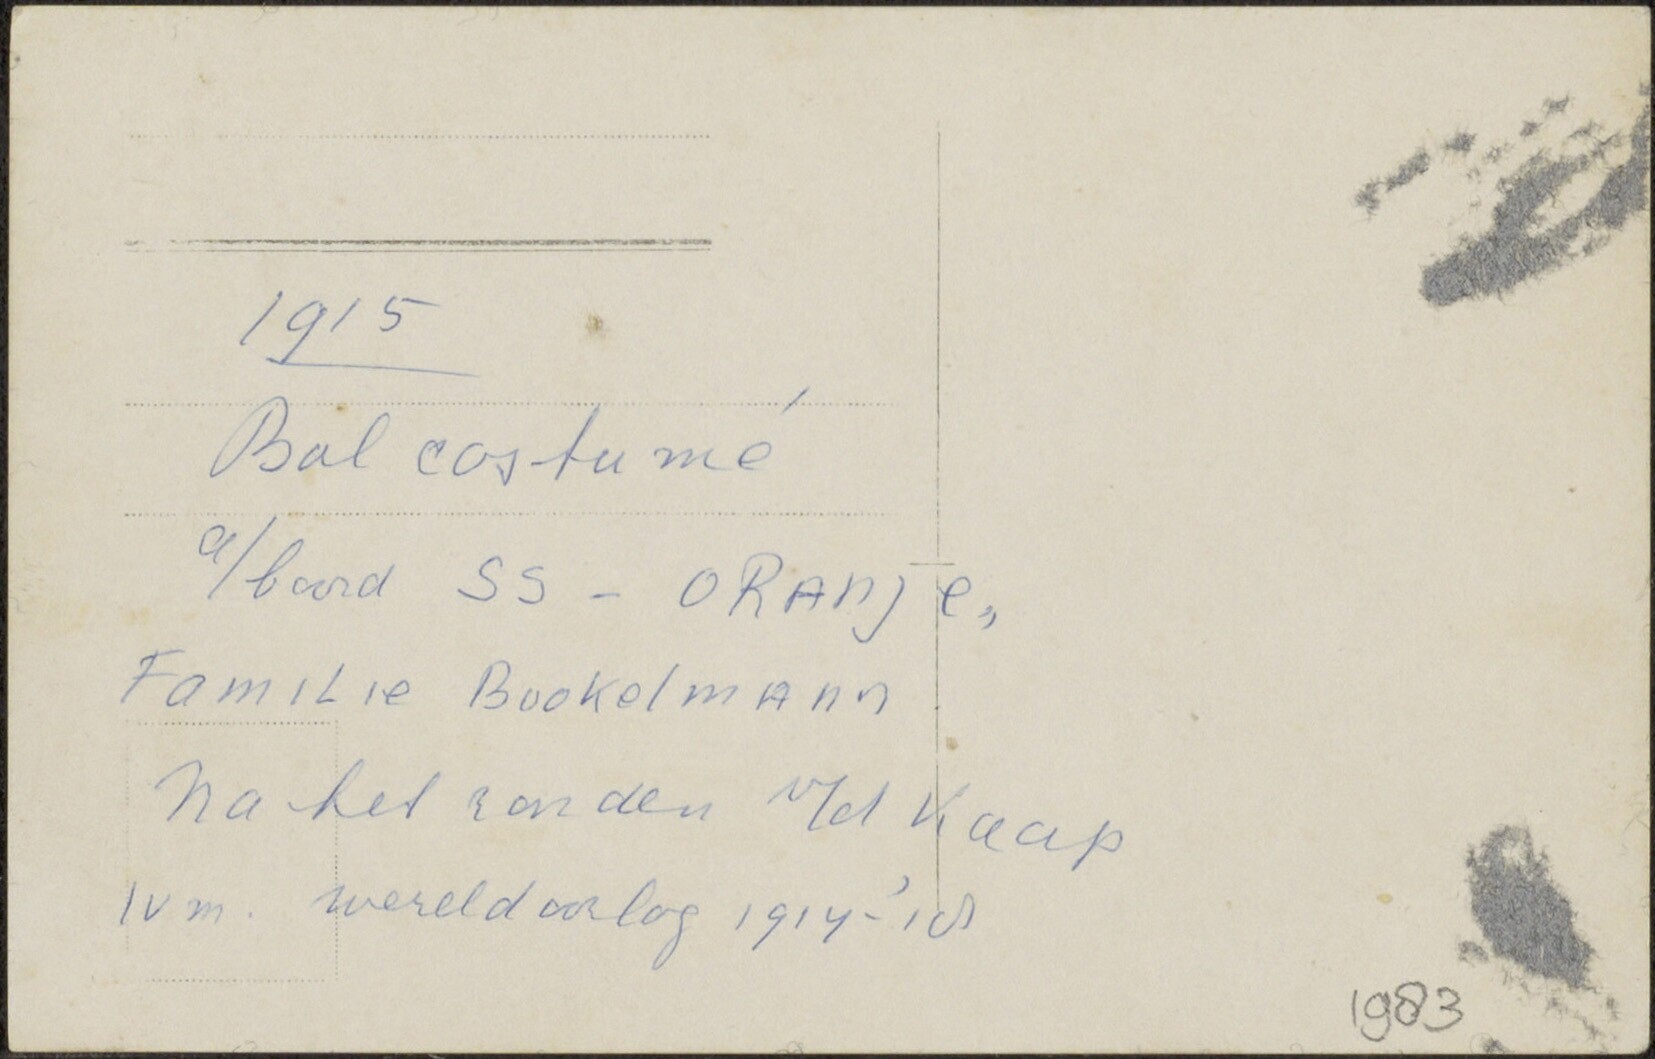 1915
Bal costumé
a/boord SS - ORANJe,
FamiLie Bookelmann
Na het ronden v/d Kaap
ivm. wereldoorlog 1914-'18
1983